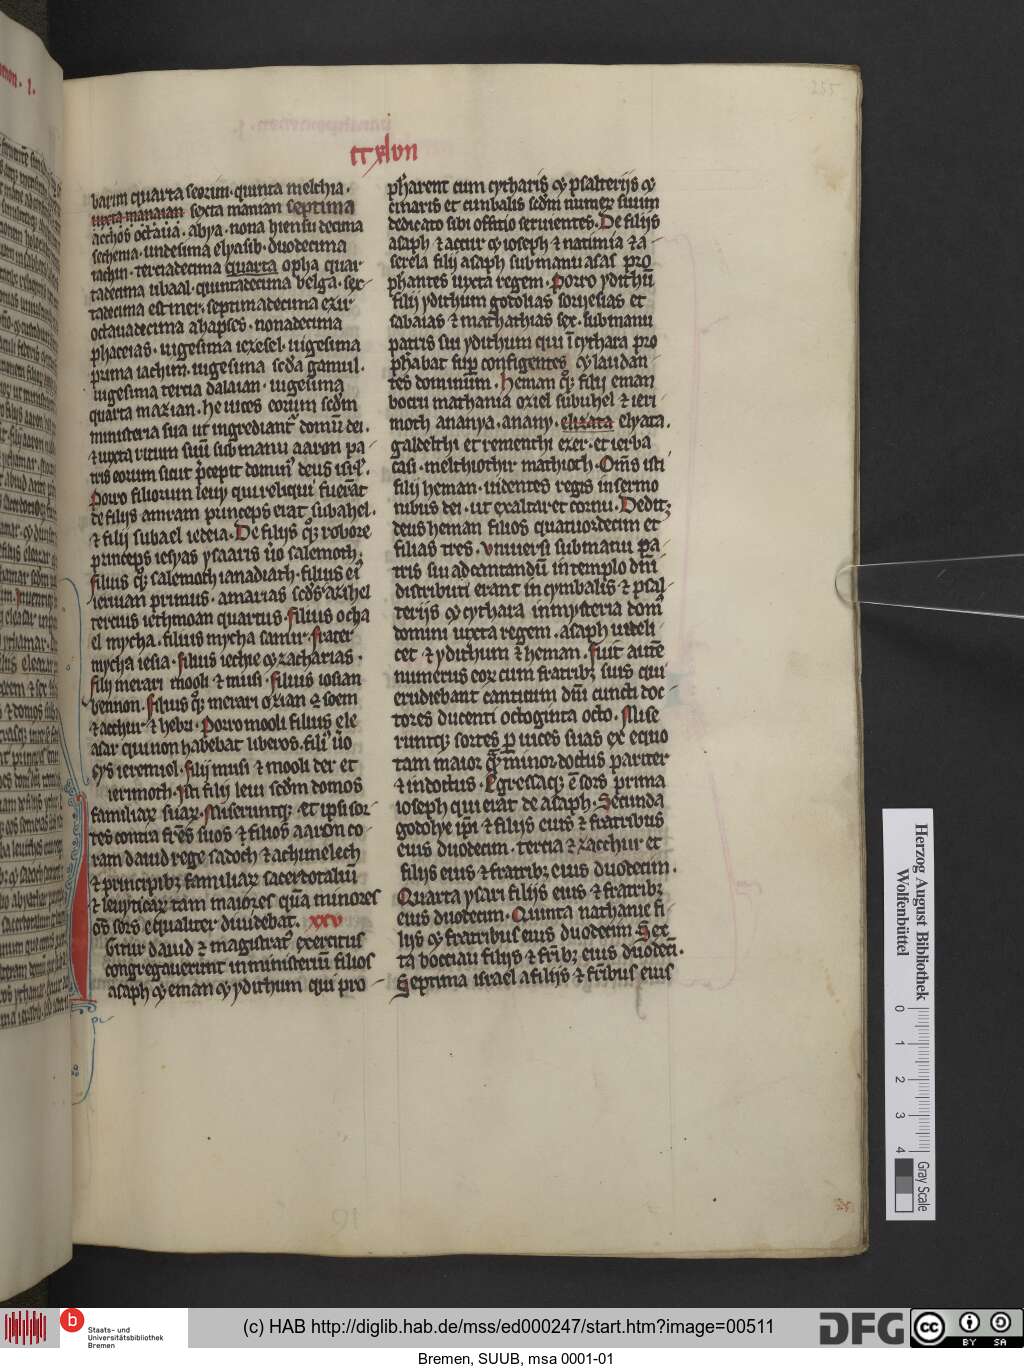 barim quarta seorim· quinta melchia·
iuxta manaian sexta maman septima
acchos octaua· abya· nona hiensu decima
sechenia· undecima elyasib· duodecima
iachin· terciadecima quarta opha quar
tadecima ubaal· quintadecima belga· sex
tadecima estmer· septimadecima ezir
octauadecima ahapses· nonadecima
phaceias· uigesima iezesel· uigesima
prima iachim· uigesima scda gamul·
uigesima tercia dalaian· uigesima
quarta mazian· he uices eorum scdm
ministeria sua ut ingrediant domū dei·
& iuxta ritum suū sub manu aaron pa
tris eorum sicut p̄cepit domin' deus isrl'·
Porro filiorum leuy qui reliqui fuerāt
de filijs amram princeps erat subahel·
& filij subael iedeia· De filijs qȝ robore
princeps iesyas ysaaris ūo salemoth·
filius qȝ salemoth ianadiath· filius ei'
ieruan primus· amarias scds' azihel
tercius iethmoan quartus· filius ocha
el mycha· filius mycha samir· frater
mycha iesia· filius iechie & zacharias·
filij merari mooli & musi· filius iosian
bennon· filius qȝ merari ozian & soem
& acchur & hebri· Porro mooli filius ele
asar qui non habebat liberos· filij ūo
cys ieremiol· filij musi & mooli der et
ierimoth· Isti filij leui scdm domos
familiaꝝ suaꝝ· Miseruntqȝ et ipsi sor
tes contra frēs suos & filios aaron co
ram dauid rege sadoch & achimelech
& principibȝ familiaꝝ sacerdotaliū
& leuiticaꝝ tam maiores quā minores
oēs sors equaliter diuidebat· xxv
Igitur dauid & magistrat' exercitus
congregauerunt in ministeriū filios
asaph & eman & ydithum qui pro
Bremen, SUUB, msa 0001-01
pħarent cum cytharis & psalterijs &
cinaris et cimbalis scdm numeꝝ suum
dedicato sibi offitio seruientes· De filijs
asaph & accur & ioseph & natimia & a
serela filij asaph sub manu asaf pro
phantes iuxta regem· Porro ydithū
filij ydithum godolias sori iesias et
sabaias & mathathias sex· sub manu
patris sui ydithum qui ī cythara pro
pħabat sup configentes & laudan
tes dominum· Heman qȝ filij eman
bocru mathania oziel subuhel & ieri
moth ananya· anany· elizata elyata·
galdelthi et rementhi ezer· et ierba
casi· melthiothir mathioth· Om̄s isti
filij heman· uidentes regis in sermo
nibus dei· ut exaltaret cornu· Deditȝ
deus heman filios quatuordecim et
filias tres· uniuersi sub manu pa
tris sui ad cantandū in templo dn̄i
distributi erant in cymbalis & psal
terijs & cythara in mysteria dom'
domini iuxta regem· asaph uideli
cet & ydithum & heman· Fuit autē
numerus eoꝝ cum fratribȝ suis qui
erudiebant canticum dn̄i cuncti doc
tores ducenti octoginta octo· Mise
runtqȝ sortes p uices suas ex equo
tam maior qȝ minor doctus pariter
& indoctus· Egressaqȝ ē sors prima
ioseph qui erat de asaph· Secunda
godolye ip̄i & filijs euis & fratribus
euis duodecim· tercia & zacchur et
filijs eius & fratribȝ eius duodecim·
Quarta ysari filijs eius & fratribȝ
eius duodecim· Quinta nathanie fi
lijs & fratribus eius duodecim Sex
ta bocciau filijs & frībȝ eius duodeci·
Septima israel a filijs & frībus eius
Herzog August Bibliothek
Wolfenbüttel
0 1 2 3 4
Gray Scale
b
Staats- und
Universitätsbibliothek
Bremen
(c) HAB http://diglib.hab.de/mss/ed000247/start.htm?image=00511
DFG
cc
BY SA